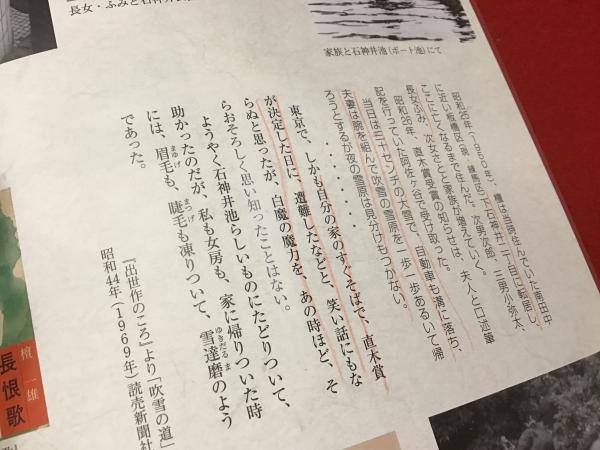 長女・ふみと石神井
家族と石神井池(ボート池)にて
昭和25年(1950年)、檀は当時住んでいた南田中
に近い板橋区(現 練馬区)下石神井二丁目に転居し
ここに亡くなるまで住んだ。次男次郎、三男小弥太、
長女ふみ、次女さとと家族が増えていく。
昭和26年、直木賞受賞の知らせは、夫人と口述筆
記を行っていた阿佐ヶ谷で受け取った。
当日は三十センチの大雪で、自動車も溝に落ち、
夫妻は腕を組んで吹雪の雪原を一歩一歩あるいて帰
ろうとするが夜の雪原は見分けもつかない。
・・・・・・・・
東京で、しかも自分の家のすぐそばで、直木賞
が決定した日に、遭難したなどと、笑い話にもな
らぬと思ったが、白魔の魔力を、あの時ほど、そ
らおそろしく思い知ったことはない。
ようやく石神井池らしいものにたどりついて、
助かったのだが、私も女房も、家に帰りついた時
には、眉毛も、睫毛も凍りついて、雪達磨のよう
であった。
まゆげ
まつげ
ゆきだるま
『出世作のころ』より「吹雪の道」
昭和44年(1969年)読売新聞社
檀 一雄
長恨歌